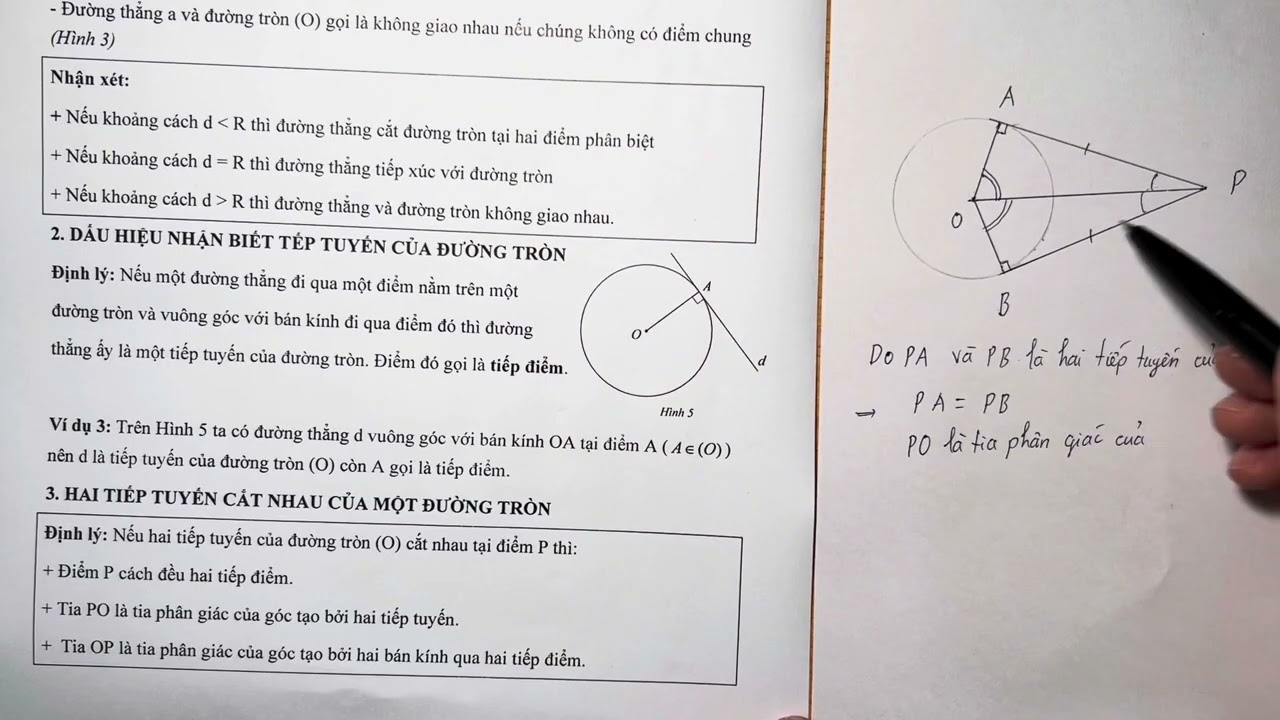 - Đường thẳng a và đường tròn (O) gọi là không giao nhau nếu chúng không có điểm chung
(Hình 3)
Nhận xét:
+ Nếu khoảng cách d < R thì đường thẳng cắt đường tròn tại hai điểm phân biệt
+ Nếu khoảng cách d = R thì đường thẳng tiếp xúc với đường tròn
+ Nếu khoảng cách d > R thì đường thẳng và đường tròn không giao nhau.
2. DẤU HIỆU NHẬN BIẾT TẾP TUYẾN CỦA ĐƯỜNG TRÒN
Định lý: Nếu một đường thẳng đi qua một điểm nằm trên một
đường tròn và vuông góc với bán kính đi qua điểm đó thì đường
thẳng ấy là một tiếp tuyến của đường tròn. Điểm đó gọi là tiếp điểm.
A
O
d
Hình 5
Ví dụ 3: Trên Hình 5 ta có đường thẳng d vuông góc với bán kính OA tại điểm A ( A∈(O) )
nên d là tiếp tuyến của đường tròn (O) còn A gọi là tiếp điểm.
3. HAI TIẾP TUYẾN CẮT NHAU CỦA MỘT ĐƯỜNG TRÒN
Định lý: Nếu hai tiếp tuyến của đường tròn (O) cắt nhau tại điểm P thì:
+ Điểm P cách đều hai tiếp điểm.
+ Tia PO là tia phân giác của góc tạo bởi hai tiếp tuyến.
+ Tia OP là tia phân giác của góc tạo bởi hai bán kính qua hai tiếp điểm.
A
P
O
B
Do PA và PB là hai tiếp tuyến
→ PA = PB
PO là tia phân giác của